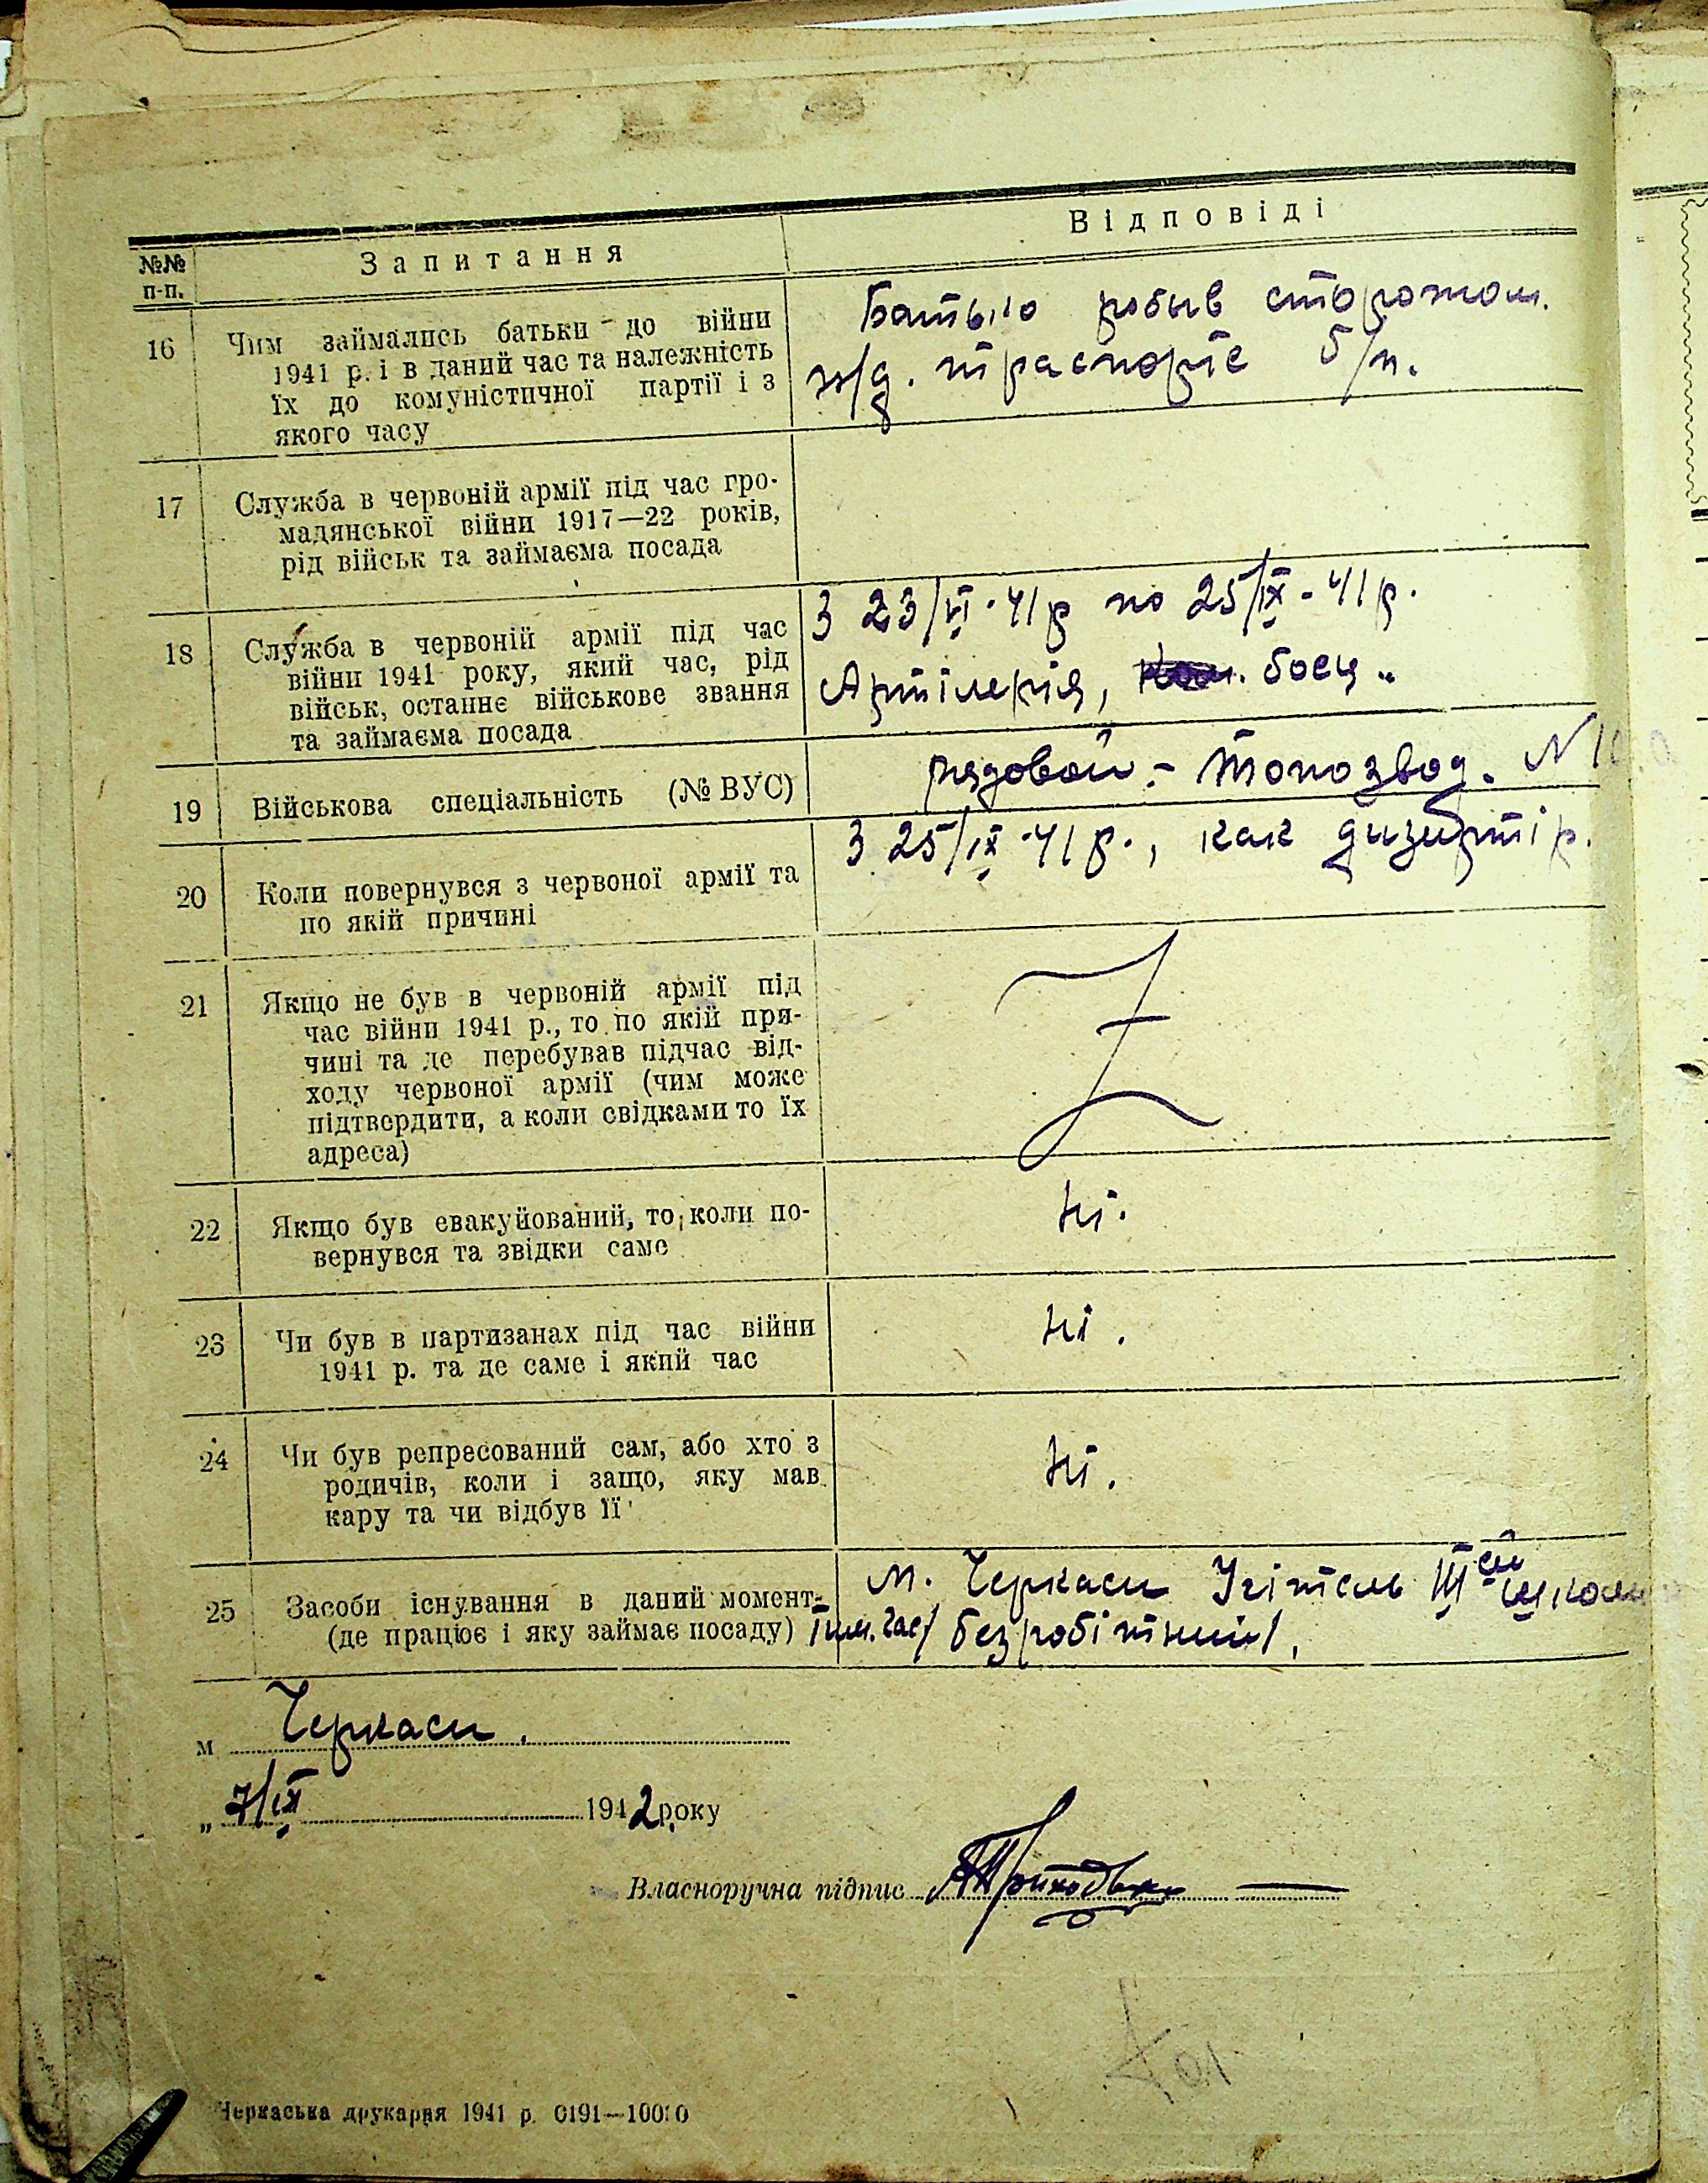 №№ п-п.
Запитання
Відповіді
16
Чим займались батьки до війни
1941 р. і в даний час та належність
їх до комуністичної партії і з
якого часу
Батько робыв сторожом.
ж/д. траспорте б/п.
17
Служба в червоній армії під час гро-
мадянської війни 1917—22 років,
рід військ та займаєма посада
18
Служба в червоній армії під час
війни 1941 року, який час, рід
військ, останнє військове звання
та займаєма посада
З 23/VI-41 р по 25/IX-41 р.
Артілерія, боец..
19
Військова спеціальність (№ ВУС)
рядовой - топозвод. N
20
Коли повернувся з червоної армії та
по якій причині
З 25/IX-41 р., как дизертір.
21
Якщо не був в червоній армії під
час війни 1941 р., то по якій при-
чині та де перебував підчас від-
ходу червоної армії (чим може
підтвердити, а коли свідками то їх
адреса)
22
Якщо був евакуйований, то коли по-
вернувся та звідки саме
ні.
23
Чи був в партизанах під час війни
1941 р. та де саме і який час
ні.
24
Чи був репресований сам, або хто з
родичів, коли і защо, яку мав
кару та чи відбув її
ні.
25
Засоби існування в даний момент-
(де працює і яку займає посаду)
м. Черкаси Учітель III ей
безробітний/.
м Черкаси.
„ 7/IX 1942 року
Власноручна підпис
Черкаська друкарня 1941 р. 0191—10000